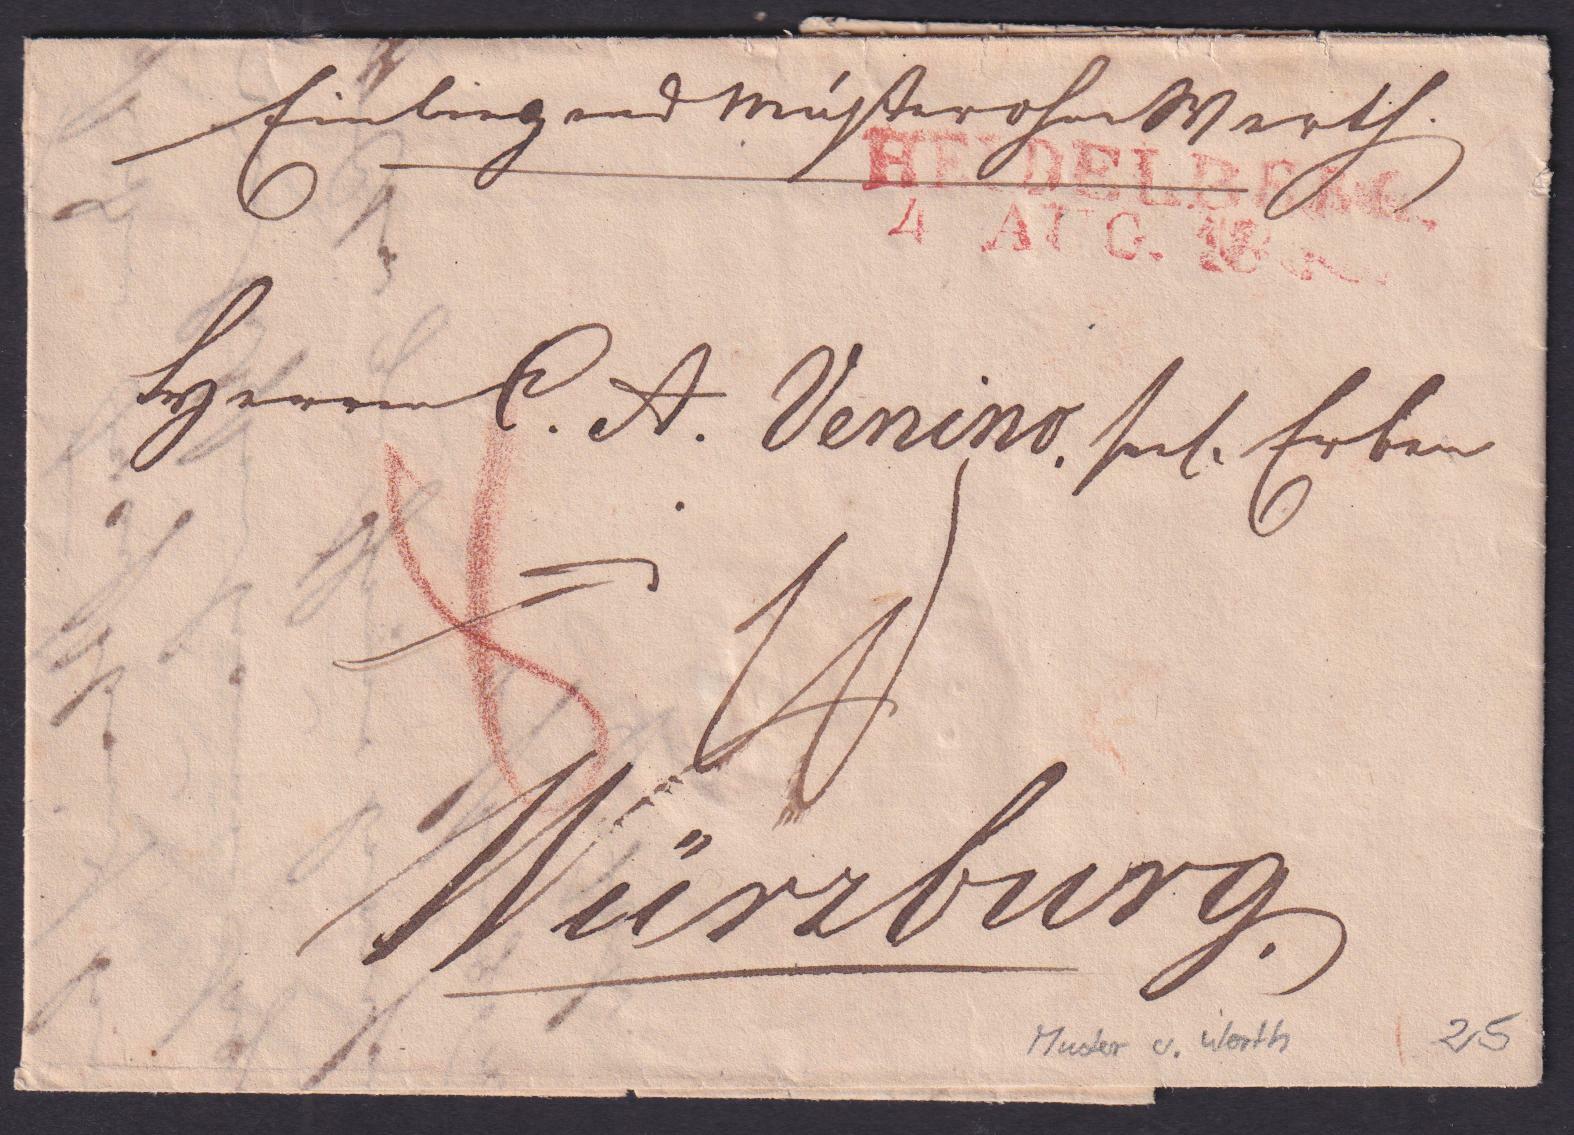 Einliegend Muster ohne Werth.
HEIDELBERG
4 AUG. 18
Herrn C. A. Venino. sel. Erben
Würzburg.
Muster o. Werth
25